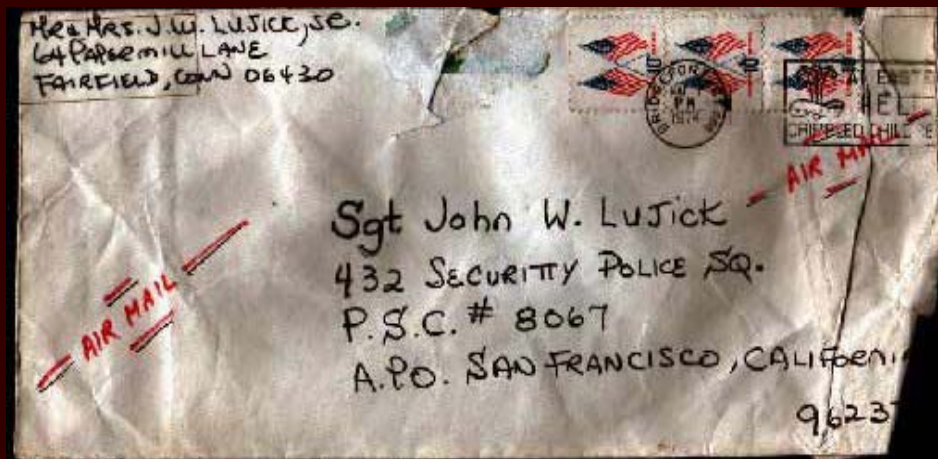 MR & MRS. J.W. LUJICK, SR.
64 PAPERMILL LANE
FAIRFIELD, CONN 06430
10 10 10
BRIDGEPORT
PM
1974
EASTE
HEL
CRIPPLED CHILDRE
AIR MAIL
Sgt John W. LUJICK
432 SECURITTY POLICE SQ.
P.S.C. # 8067
A.P.O. SAN FRANCISCO, CALIFORNI
96237
AIR MAIL